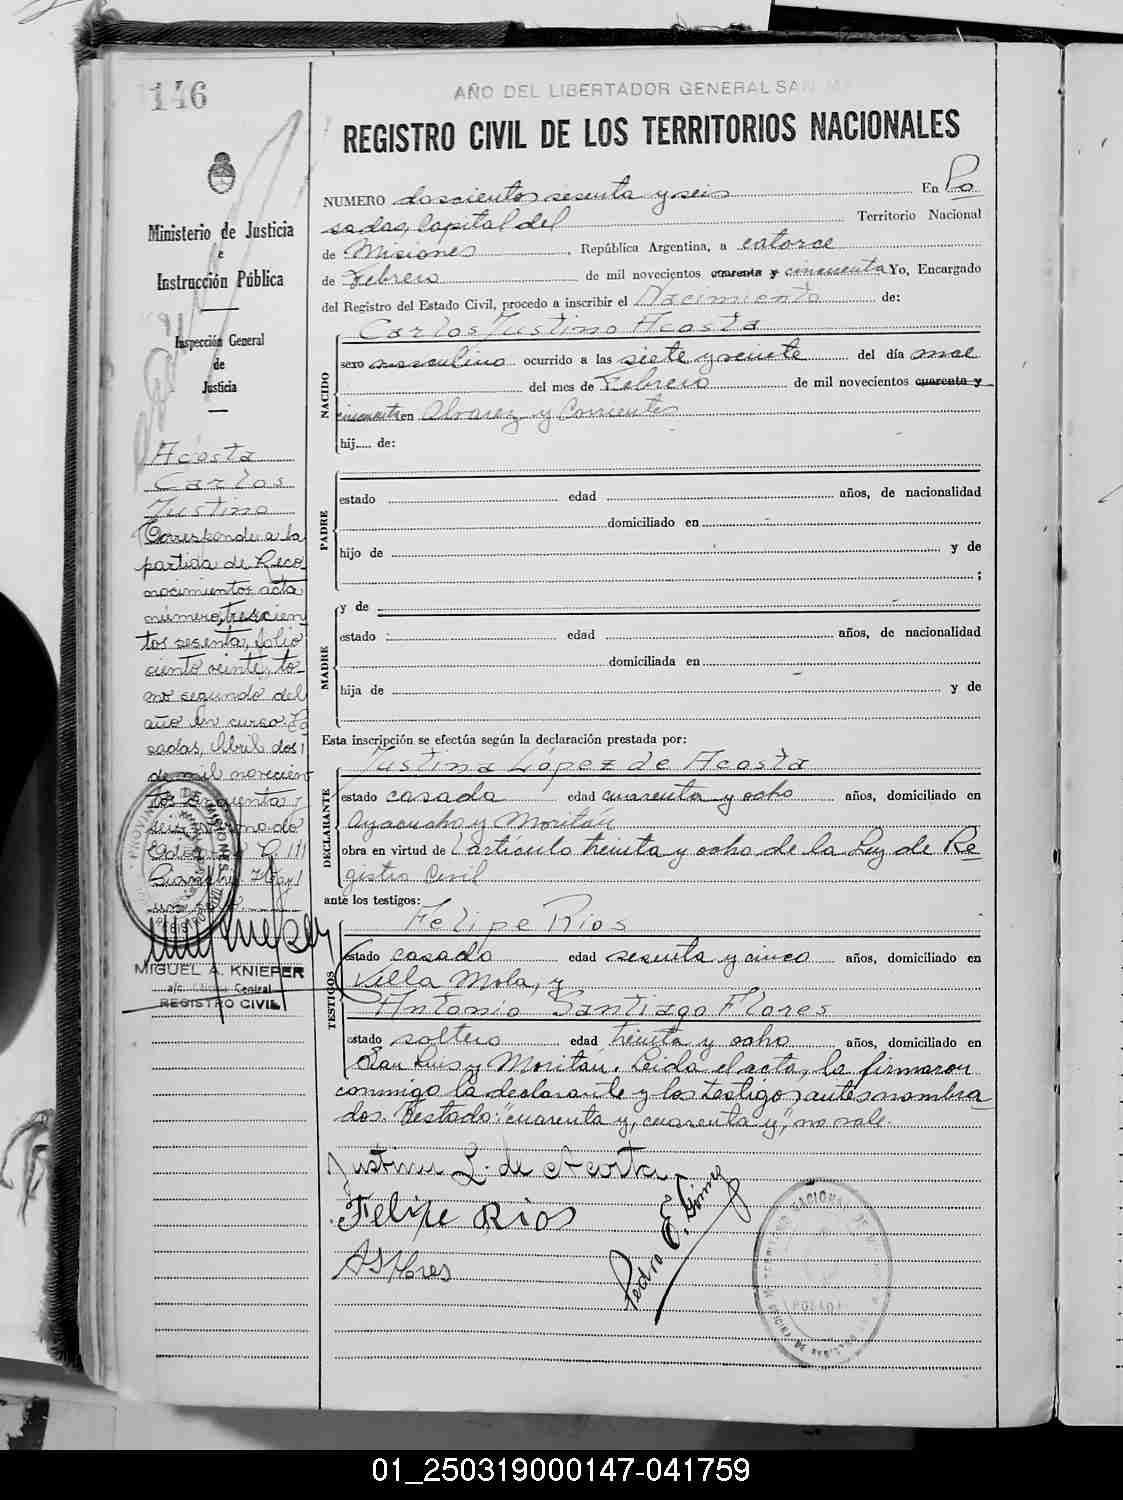 146
AÑO DEL LIBERTADOR GENERAL SAN
REGISTRO CIVIL DE LOS TERRITORIOS NACIONALES
NUMERO doscientos sesenta y seis En Po
sadas, Capital del Territorio Nacional
de Misiones, República Argentina, a catorce
de Febrero de mil novecientos cuarenta y cincuenta Yo, Encargado
del Registro del Estado Civil, procedo a inscribir el Nacimiento de:
NACIDO
Carlos Justino Acosta
sexo masculino ocurrido a las siete y veinte del día once
del mes de Febrero de mil novecientos cuarenta y
cincuenta en Alvarez y Corrientes
hij.... de:
PADRE
estado edad años, de nacionalidad
domiciliado en
hijo de y de
;
MADRE
y de
estado edad años, de nacionalidad
domiciliada en
hija de y de
Esta inscripción se efectúa según la declaración prestada por:
DECLARANTE
Justina López de Acosta
estado casada edad cuarenta y ocho años, domiciliado en
Ayacucho y Moritán
obra en virtud de artículo treinta y ocho de la Ley de Re
gistro Civil
ante los testigos:
TESTIGOS
Felipe Rios
estado casado edad sesenta y cinco años, domiciliado en
Villa Mola, y
Antonio Santiago Flores
estado soltero edad treinta y ocho años, domiciliado en
San Luis y Moritán. Leida el acta, la firmaron
conmigo la declarante y los testigos antes nombra
dos. Testado: "cuarenta y, cuarenta y", no vale.
Justina L. de Acosta
Felipe Rios
AS Flores
Pedro E. Gómez
Ministerio de Justicia
e
Instrucción Pública
Inspección General
de
Justicia
Acosta
Carlos
Justino
Corresponde a la
partida de Reco
nocimientos acta
número, trescien
tos sesenta, folio
ciento veinte, to-
mo segundo del
año en curso. Po
sadas, Abril dos
de mil novecien
tos cincuenta y
PROVINCIA DE MISIONES
REGISTRO CIVIL
MIGUEL A. KNIEPER
a/c. Oficina Central
REGISTRO CIVIL
01_250319000147-041759